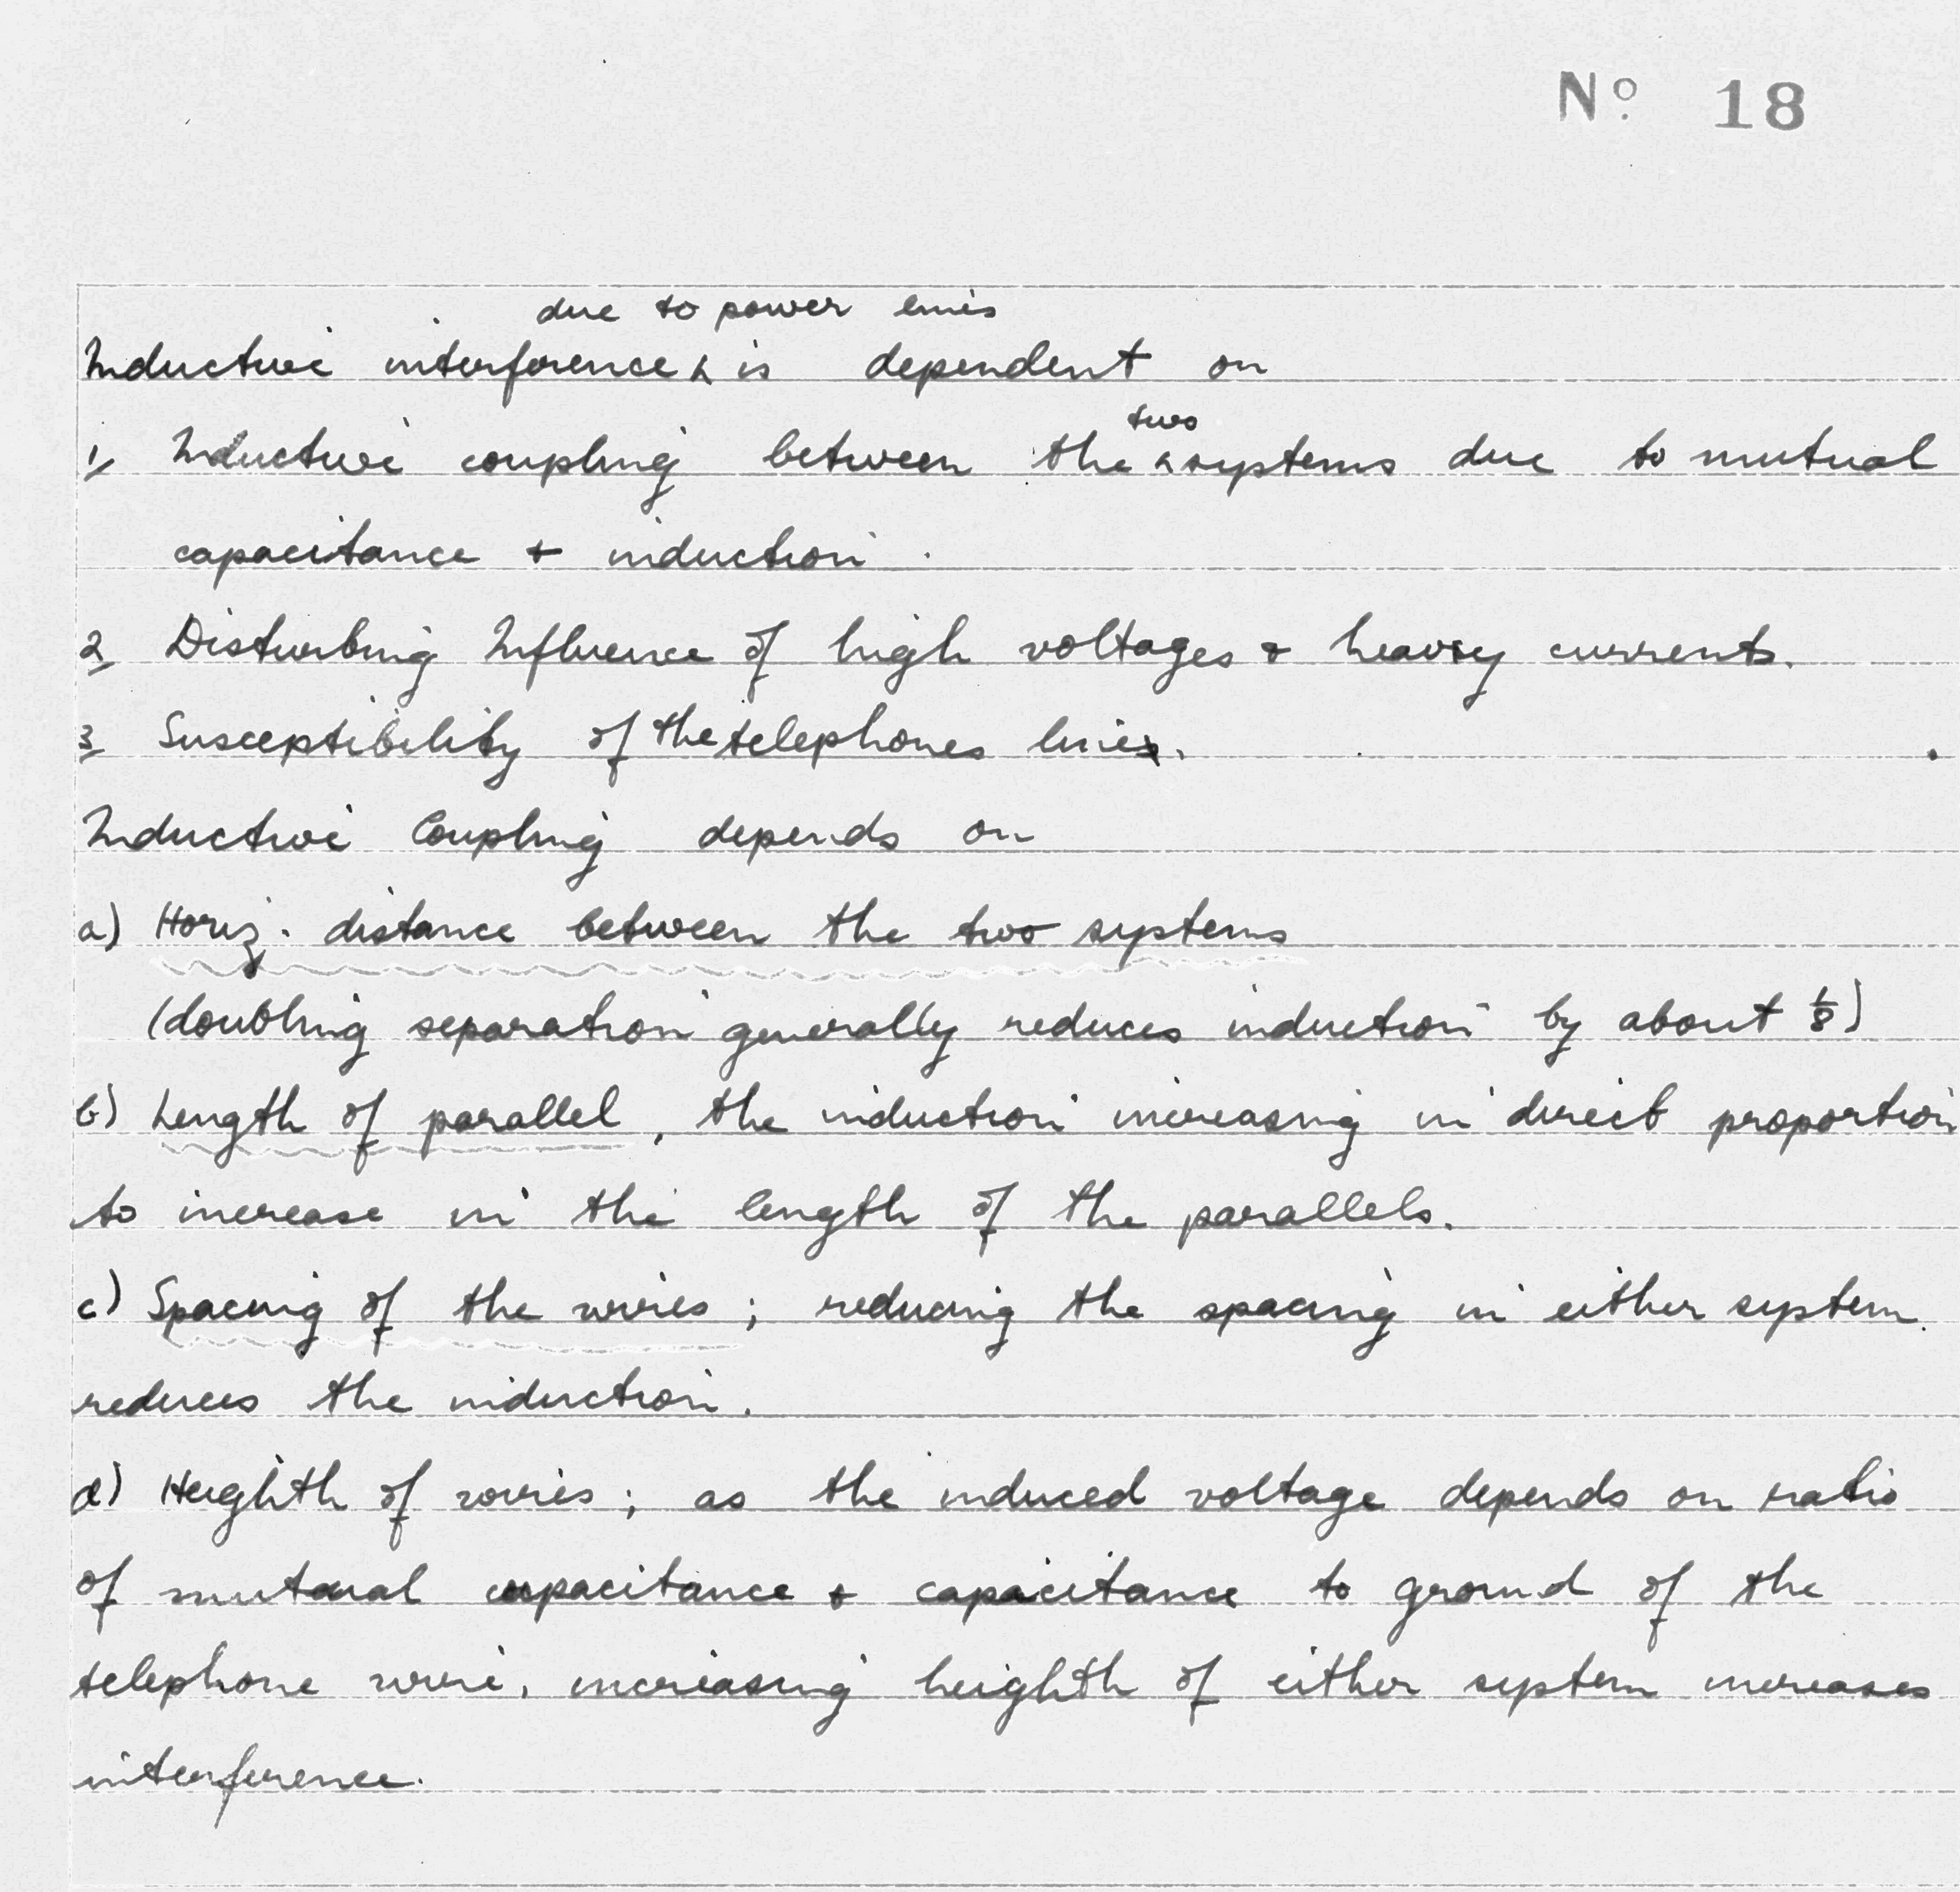 Nº 18
due to power lines
Inductive interference is dependent on
two
1, Inductive coupling between the systems due to mutual
capacitance + induction.
2, Disturbing Influence of high voltages + heavy currents.
3, Susceptibility of the telephones lines.
Inductive Coupling depends on
a) Horiz. distance between the two systems
(doubling separation generally reduces induction by about 1/8)
b) Length of parallel, the induction increasing in direct proportion
to increase in the length of the parallels.
c) Spacing of the wires; reducing the spacing in either system.
reduces the induction.
d) Heighth of wires; as the induced voltage depends on ratio
of mutual capacitance + capacitance to ground of the
telephone wire, increasing heighth of either system increases
interference.